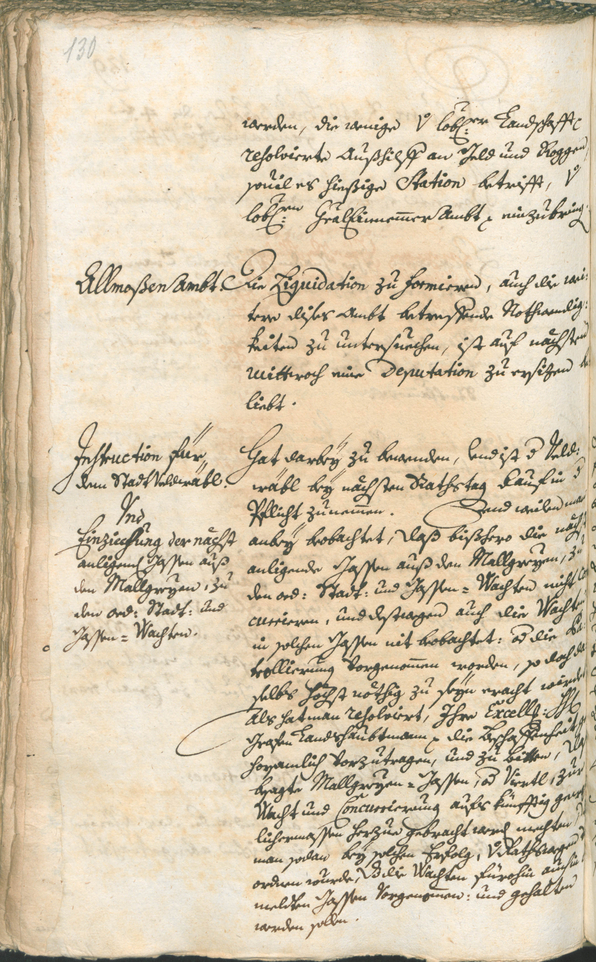 130
werden, die wenige V löbl: Landschafft
resolvierte Außhilff an Geld und Roggen
souil es hießige Station betrifft, V
löbl: Gräl Einnemmer Ambt einzubring
Allmoßen Ambt. Die Liquidation zu formieren, auch die wei-
tere dißes Ambt betreffende Nothwendig-
keiten zu untersuechen, ist auf nächsten
Mittwoch eine Deputation zu ersizen be-
liebt.
Instruction für
dem Statt Veldwäbl.
Und
Einziechung der nächst
anligenden Gassen auß
den Mallgreyen, zu
den ord: Statt: und
Gassen-Wachten.
Hat darbey zu bewenden, und ist d Veld-
wäbl bey nächsten Rathstag darauf in d
Pflicht zunemmen. Und weilen man
anbey beobachtet, daß bißhero die nächst
anligende Gassen auß den Mallgreyen, zu
den ord: Statt: und Gassen-Wachten nicht con-
curieren, und destwegen auch die Wachten
in solchen Gassen nit beobachtet: od die
trollierung vorgenommen worden, so doch
selbs höchst nöthig zu seyn eracht würdet
Als hat man resolviert, Ihro Excell:
Grafen Landshaubtmann die Beschaffenheit
gehorsamblich vorzutragen, und zu bitten,
sagte Mallgreyen-Gassen, od Viertl, zur
Wacht und Concurrierung aufs künfftig
lichermassen herzue gebracht werd mechten
man sodan bey solchen Erfolg, V Rathswegen
ordnen wurde, die Wachten fürohin
melten Gassen vorgenommen: und gehalten
werden solen.